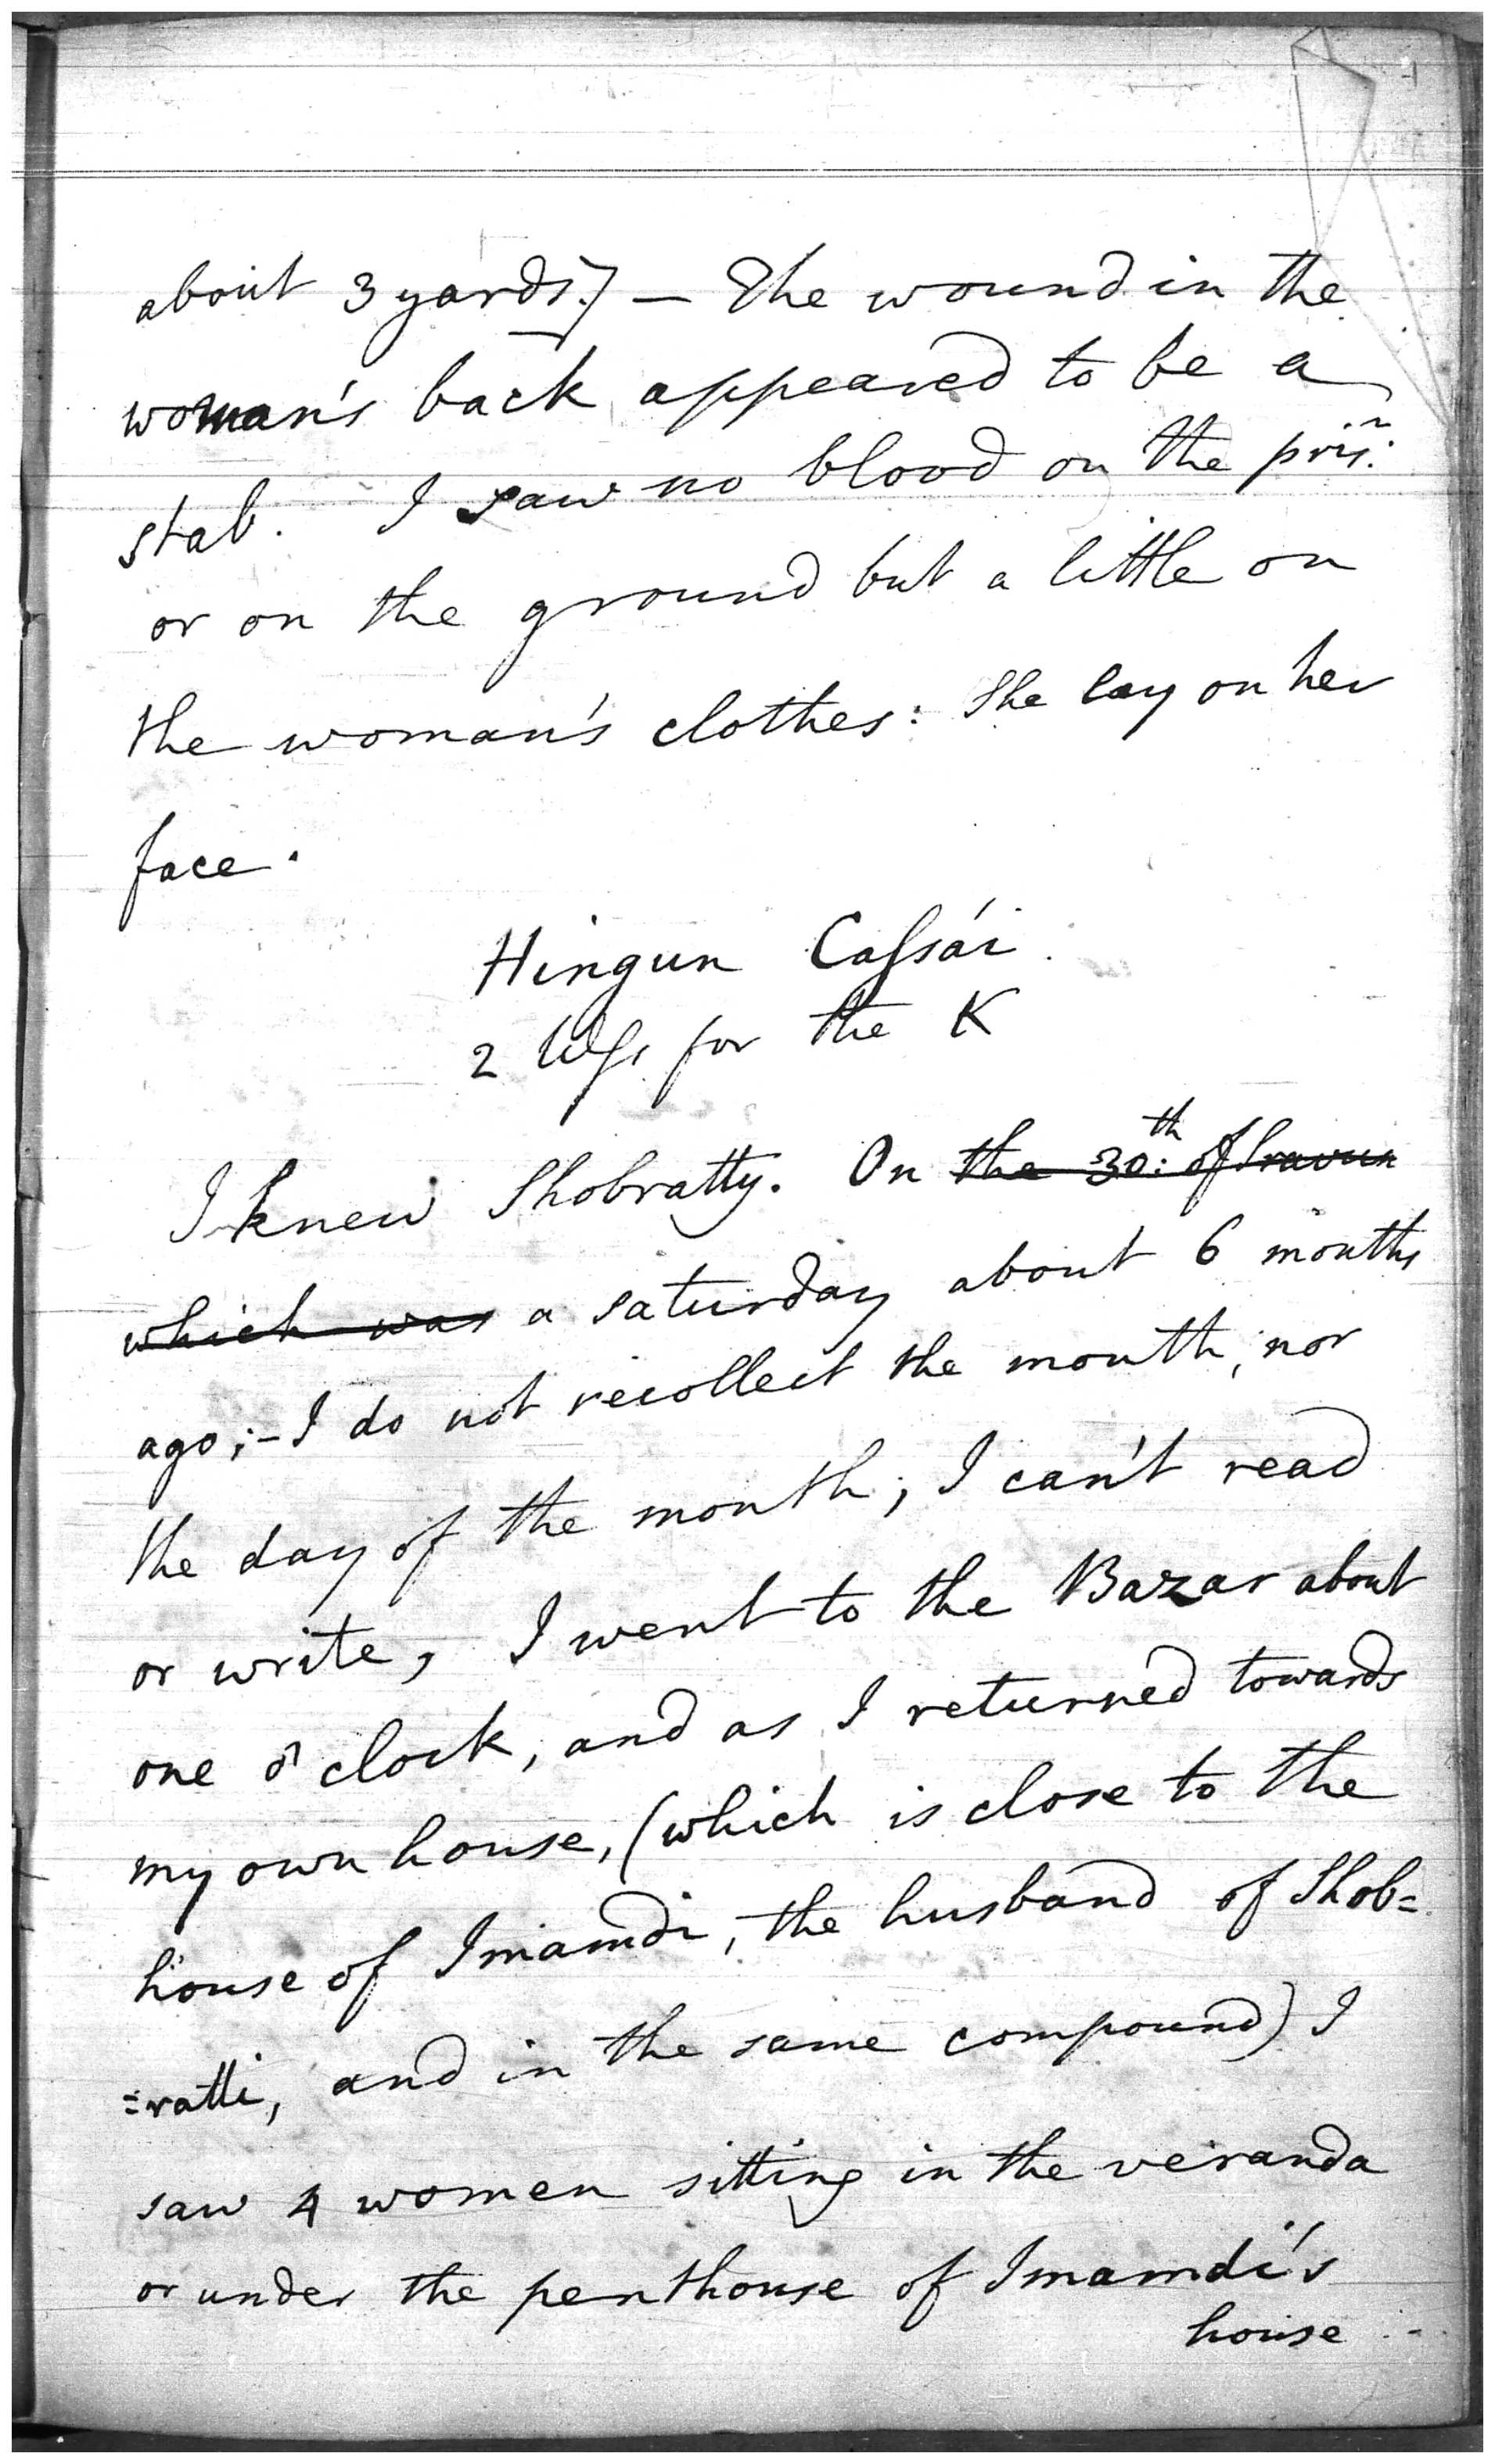 about 3 yards.] — The wound in the
woman's back appeared to be a
stab. I saw no blood on the prisr.
or on the ground but a little on
the woman's clothes: She lay on her
face.
Hingun Cassái.
2 Wss. for the K
I knew Shobratty. On the 30:th of Sravun
which was a saturday about 6 months
ago;- I do not recollect the month, nor
the day of the month; I can't read
or write, I went to the Bazar about
one o'clock, and as I returned towards
my own house, (which is close to the
house of Imamdi, the husband of Shob=
=ratti, and in the same compound) I
saw 4 women sitting in the veranda
or under the penthouse of Imamdi's
house